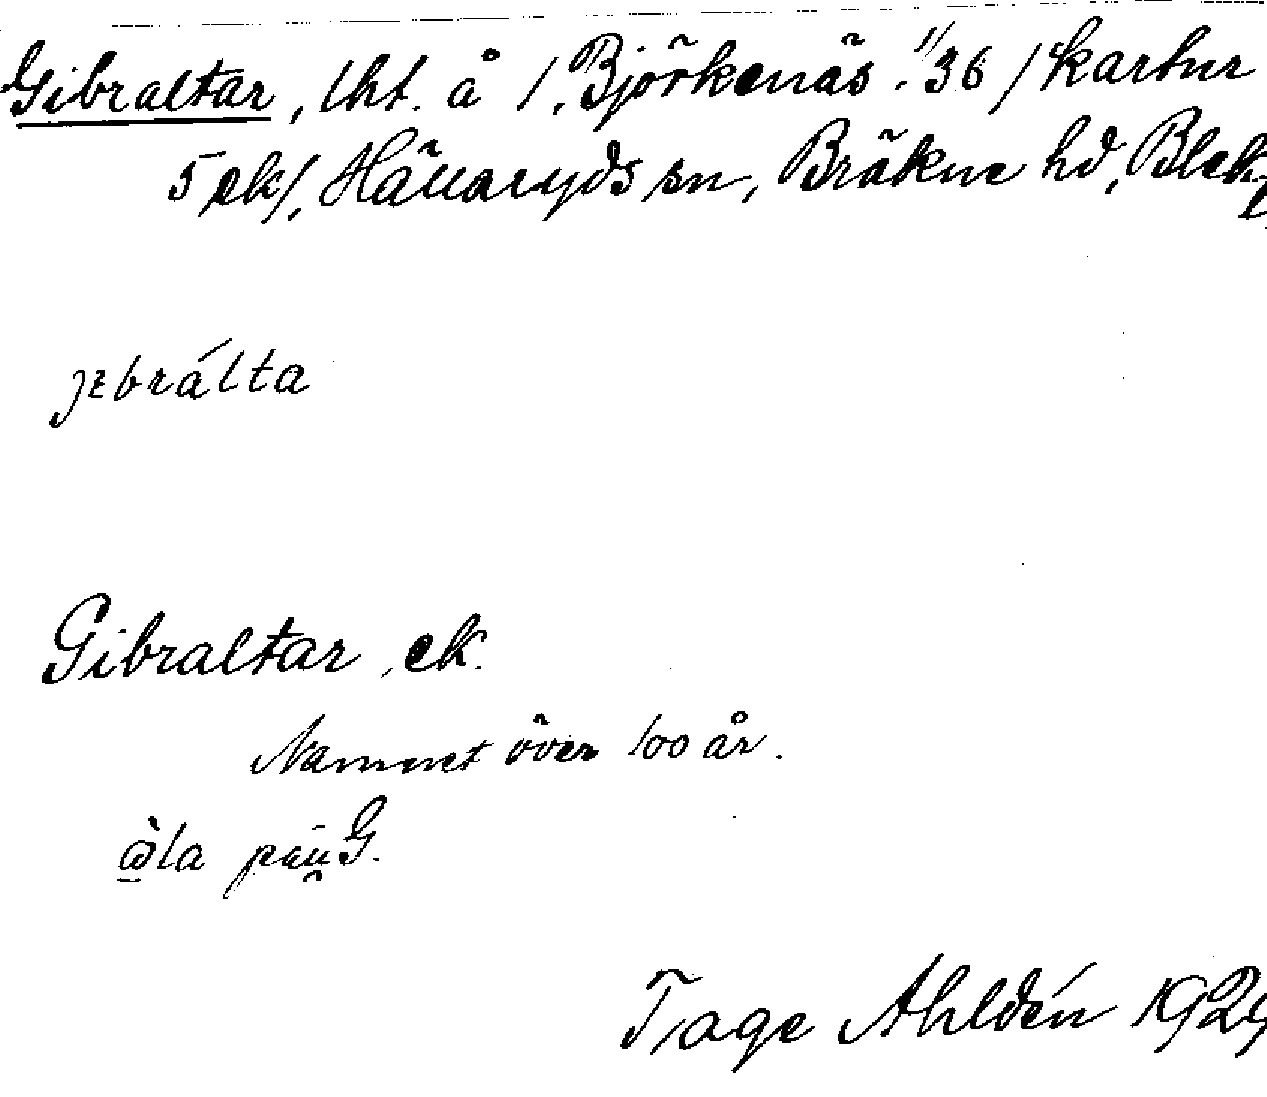 Gibraltar, lht. å 1, Björkenäs 1/36 /kartur
5 ek/, Hällaryds sn, Bräkne hd, Blek
jɪbrálta
Gibraltar, ek.
Namnet över 100 år.
G.
Tage Ahldén 192